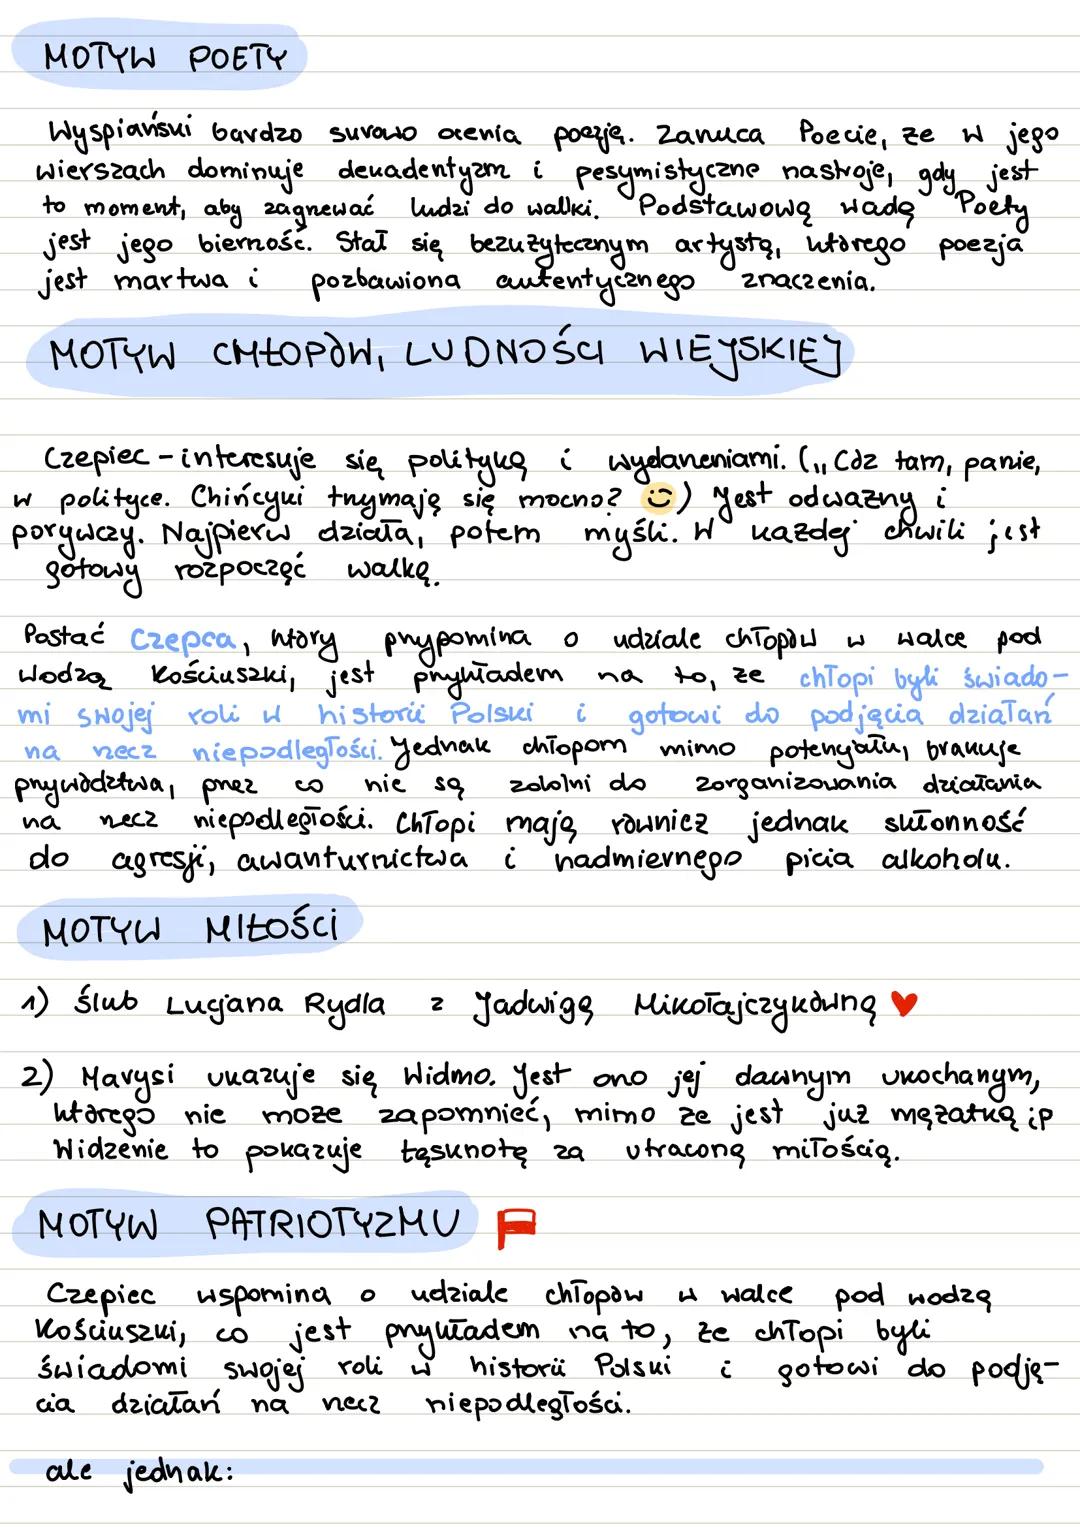 MOTYW POETY
Wyspiański bardzo surowo ocenia poezję. Zarzuca Poecie, że w jego
wierszach dominuje dekadentyzm i pesymistyczne nastroje, gdy jest
to moment, aby zagrzewać ludzi do walki. Podstawową wadą Poety
jest jego bierność. Stał się bezużytecznym artystą, którego poezja
jest martwa i pozbawiona autentycznego znaczenia.
MOTYW CHŁOPÓW, LUDNOŚCI WIEJSKIEJ
Czepiec - interesuje się polityką i wydarzeniami. („Cóż tam, panie,
w polityce. Chińcyki trzymają się mocno? 🙂) Jest odważny i
porywczy. Najpierw działa, potem myśli. W każdej chwili jest
gotowy rozpocząć walkę.
Postać Czepca, który przypomina o udziale chłopów w walce pod
wodzą Kościuszki, jest przykładem na to, że chłopi byli świado-
mi swojej roli w historii Polski i gotowi do podjęcia działań
na rzecz niepodległości. Jednak chłopom mimo potencjału, brakuje
przywództwa, przez co nie są zdolni do zorganizowania działania
na rzecz niepodległości. Chłopi mają również jednak skłonność
do agresji, awanturnictwa i nadmiernego picia alkoholu.
MOTYW MIŁOŚCI
1) Ślub Lucjana Rydla z Jadwigą Mikołajczykówną ♥
2) Marysi ukazuje się Widmo. Jest ono jej dawnym ukochanym,
którego nie może zapomnieć, mimo że jest już mężatką ;p
Widzenie to pokazuje tęsknotę za utraconą miłością.
MOTYW PATRIOTYZMU
Czepiec wspomina o udziale chłopów w walce pod wodzą
Kościuszki, co jest przykładem na to, że chłopi byli
świadomi swojej roli w historii Polski i gotowi do podję-
cia działań na rzecz niepodległości.
ale jednak: